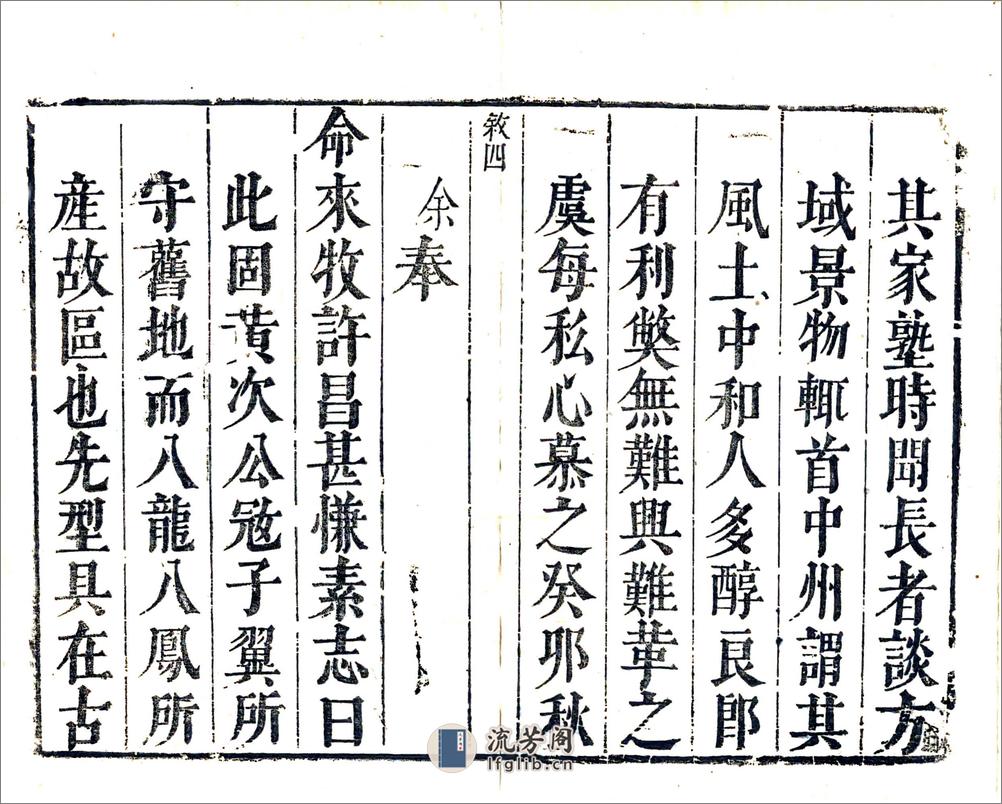 其家塾時聞長者談方
域景物輒首中州謂其
風土中和人多醇良卽
有利獘無難興難革之
虞每私心慕之癸卯秋
敘四
余奉
命來牧許昌甚慊素志曰
此固黃次公寇子翼所
守舊地而八龍八鳳所
産故區也先型具在古
流芳阁
lfglib.cn